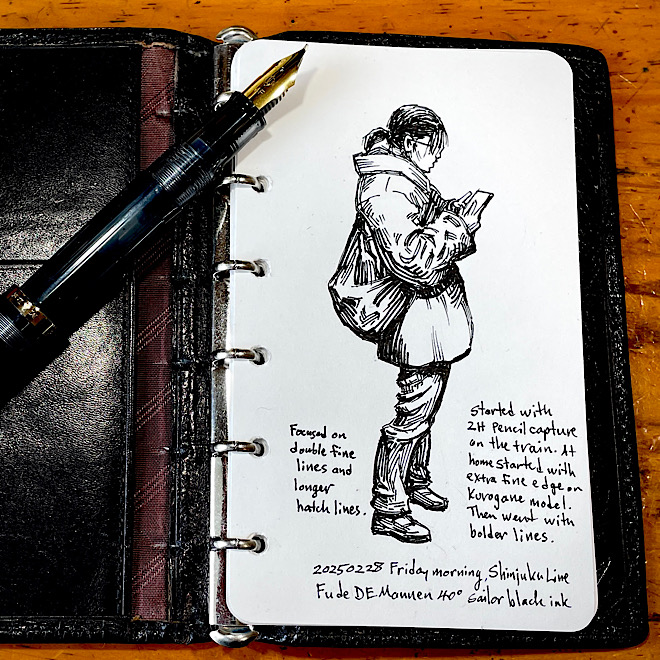 Focused on
double fine
lines and
longer
hatch lines.
Started with
2H Pencil capture
on the train. At
home started with
extra fine edge on
Kurogane model.
Then went with
bolder lines.
20250228 Friday morning, Shinjuku Line
Fude DE Mannen 40° Sailor black ink